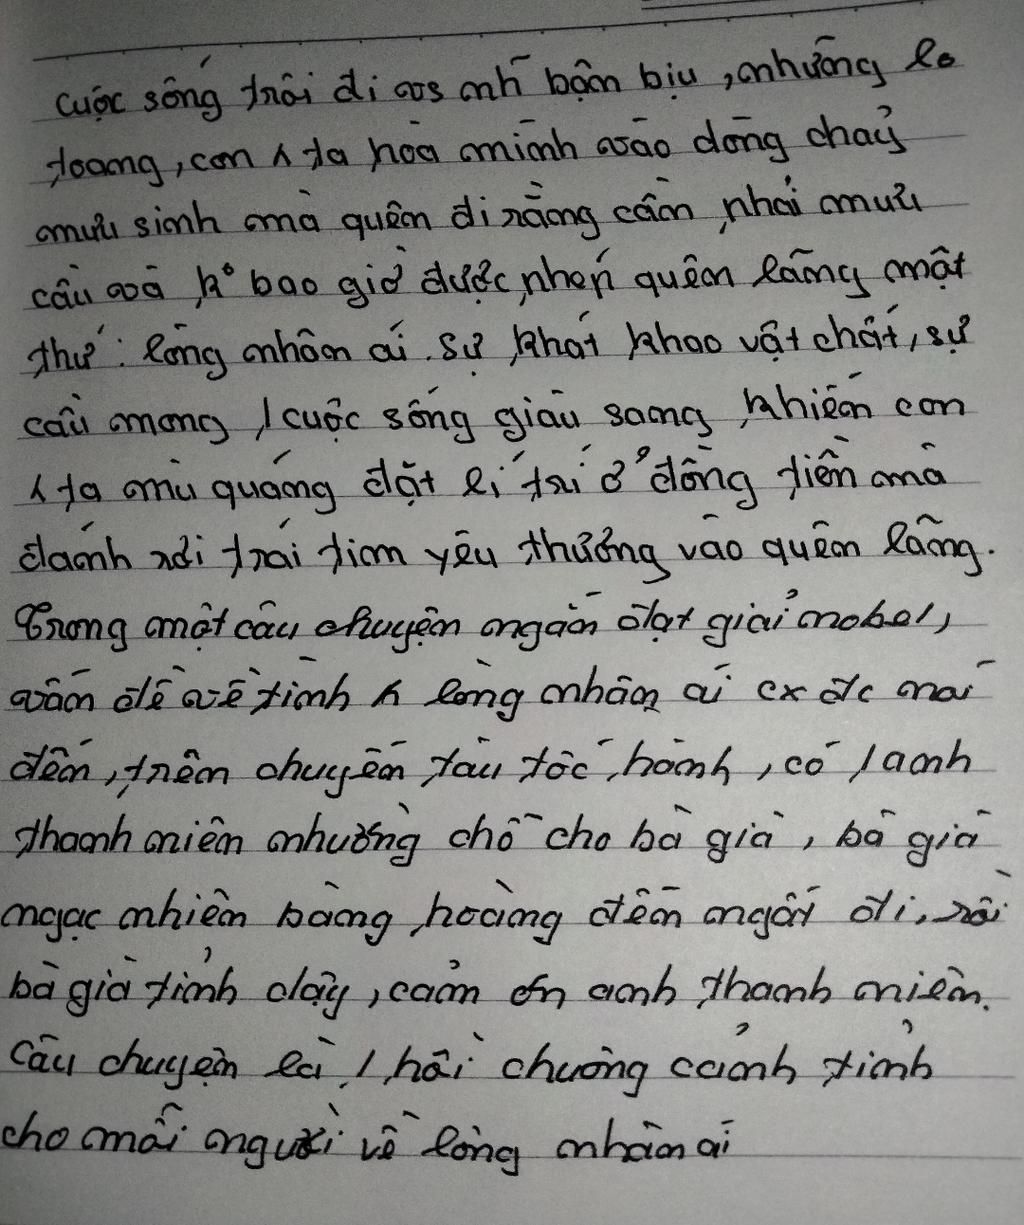 cuộc sống trôi đi vs nh~ bận bịu, những lo
toang, con ^ ta hòa mình vào dòng chảy
mưu sinh mà quên đi rằng cần phải mưu
cầu và k° bao giờ được phép quên lãng một
thứ: lòng nhân ái. Sự khát khao vật chất, sự
cầu mong 1 cuộc sống giàu sang khiến con
^ ta mù quáng đặt lí trí ở đồng tiền mà
đánh rơi trái tim yêu thương vào quên lãng.
Trong một câu chuyện ngắn đạt giải nobel,
vấn đề về tình ^ lòng nhân ái cx đc nói
đến, trên chuyến tàu tốc hành, có 1 anh
thanh niên nhường chỗ cho bà già, bà già
ngạc nhiên bàng hoàng đến ngất đi, rồi
bà già tỉnh dậy, cảm ơn anh thanh niên.
Câu chuyện là 1 hồi chuông cảnh tỉnh
cho mỗi người về lòng nhân ái